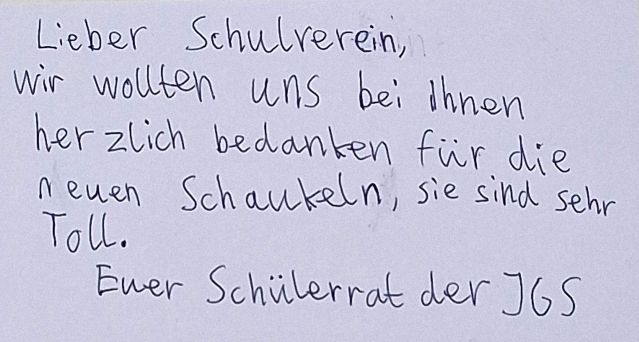 Lieber Schulverein,
wir wollten uns bei Ihnen
herzlich bedanken für die
neuen Schaukeln, sie sind sehr
Toll.
Euer Schülerrat der JGS